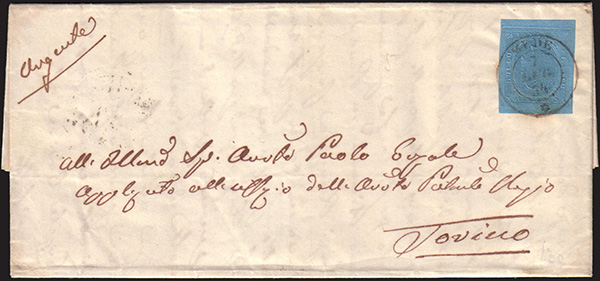 Urgente
MEDE
54
all Illmo Sig. Avvto Paolo
applicato all'uffizio dell Avvto Regio
Torino